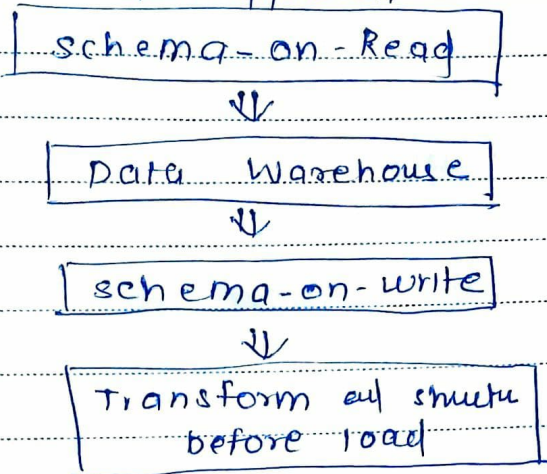 schema-on-Read
Data Warehouse
schema-on-write
Transform
before load